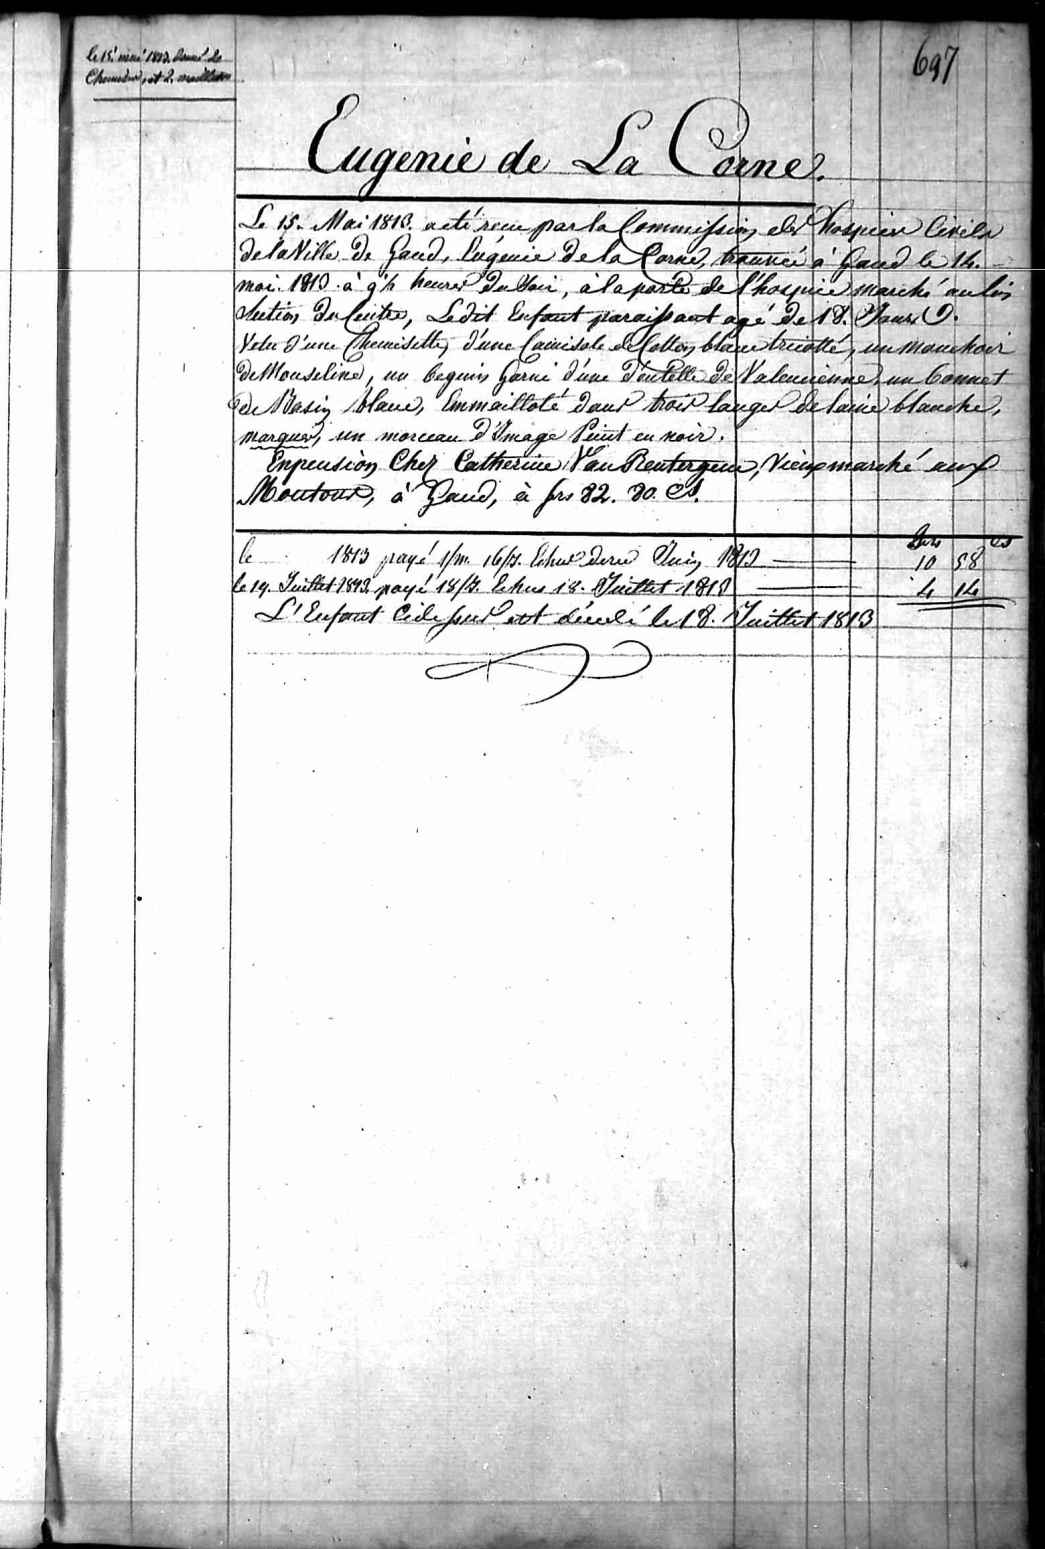 697
le 15 mai 1813. donné de
Chemises, et 2. maillots
Eugenie de La Corne.
Le 15. Mai 1813. a été recu par la Commission des hospices Civils
de la Ville de Gand, Eugénie de la Corne, trouvée à Gand le 14.
mai 1813 à 9 1/2 heures du Soir, à la porte de l'hospice marché au lin
Section du Centre, Ledit Enfant paraissant agé de 18. Jours
Vetu d'une Chemisette, d'une Camisole de Cotton blanc tricotté, un mouchoir
de Mouseline, un beguin Garni d'une Dentelle de Valencienne, un bonnet
de Basin blanc, Emmailloté dans trois langes de laine blanche,
marques, un morceau d'Image Peint en noir.
En pension Chez Catherine Van Rentergem, Vieux marché aux
Moutons, à Gand, à frs 82. 80. Cs.
frs cs
le 1813 payé 1/m 16/J. Echus dern Juin 1813 10 58
le 19. Juillet 1813 payé 18/J. Echus 18. Juillet 1813 4 14
L'Enfant Cidessus est décedé le 18. Juillet 1813